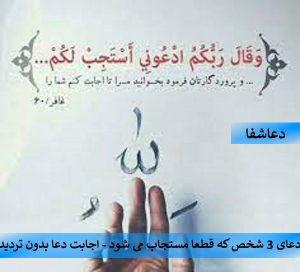 وَقَالَ رَبُّكُمُ ادْعُونِي أَسْتَجِبْ لَكُمْ...
... و پروردگارتان فرمود بخوانید مرا تا اجابت کنم شما را
غافر/۶۰
دعاشفا
لله
دعای 3 شخص که قطعا مستجاب می شود - اجابت دعا بدون تردید